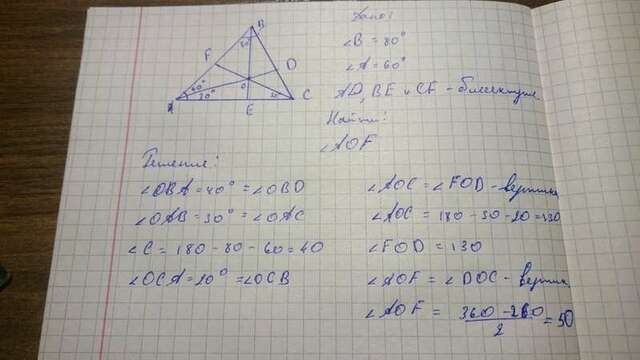 B
80°
F
D
60°
O
30°
20
A
E
C
Дано:
∠B = 80°
∠A = 60°
AD, BE и CF - биссектрисы
Найти:
∠AOF
Решение:
∠OBA = 40° = ∠OBD
∠OAB = 30° = ∠OAC
∠C = 180 - 80 - 60 = 40
∠OCA = 20° = ∠OCB
∠AOC = ∠FOD - вертик
∠AOC = 180 - 30 - 20 = 130
∠FOD = 130
∠AOF = ∠DOC - вертик
∠AOF = 360 - 260
2
= 50